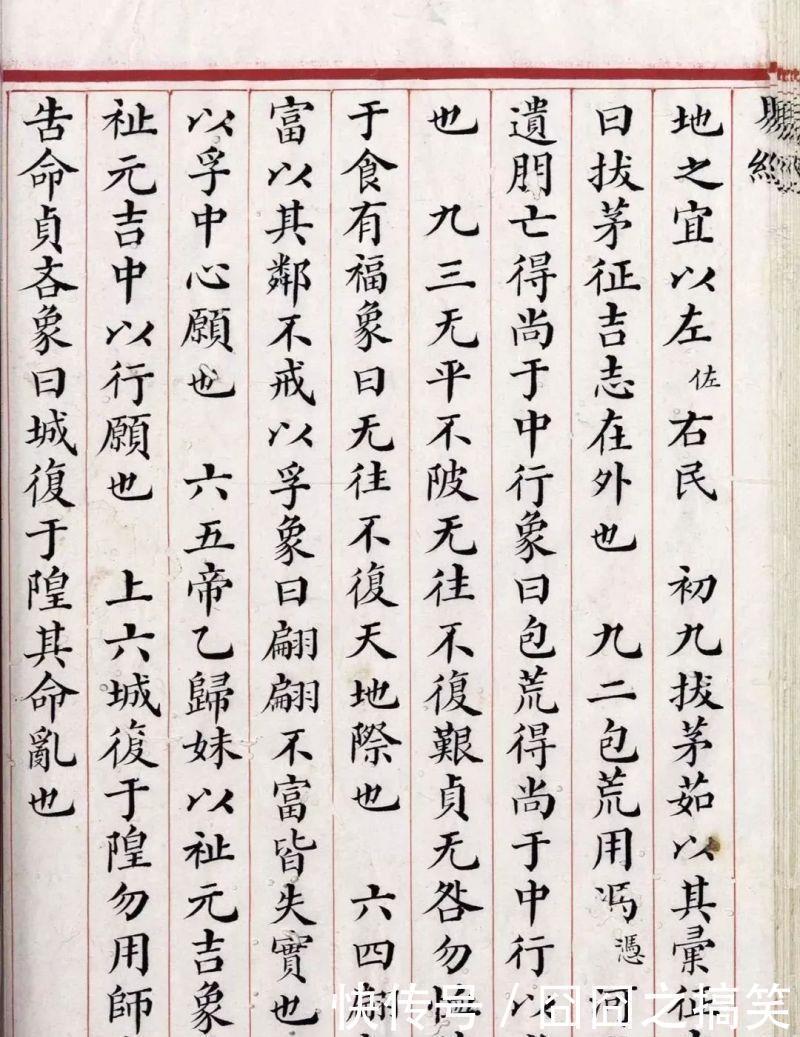 地之宜以左佐右民 初九拔茅茹以其彙征
曰拔茅征吉志在外也 九二包荒用馮憑河
遺朋亡得尚于中行象曰包荒得尚于中行以
也 九三无平不陂无往不復艱貞无咎勿恤
于食有福象曰无往不復天地際也 六四翩
富以其鄰不戒以孚象曰翩翩不富皆失實也
以孚中心願也 六五帝乙歸妹以祉元吉象
祉元吉中以行願也 上六城復于隍勿用師
告命貞吝象曰城復于隍其命亂也
快传号 / 囧囧之搞笑